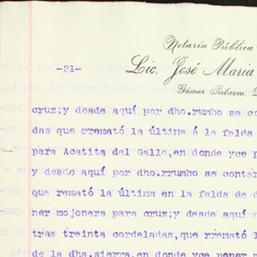 Notaría Pública
-21-
Lic. José Maria
Gómez Palacio,
cruz;y desde aquí por dho.rumbo se co
das que rremató la última á la falda
para Acatita del Gallo,en donde yce p
y desde aquí por dho.rrumbo se conta
que remató la última en la falda de d
ner mojonera para cruz;y desde aquí p
tras treinta cordeladas,que rremató l
de la dha.sierra,en donde yce poner m